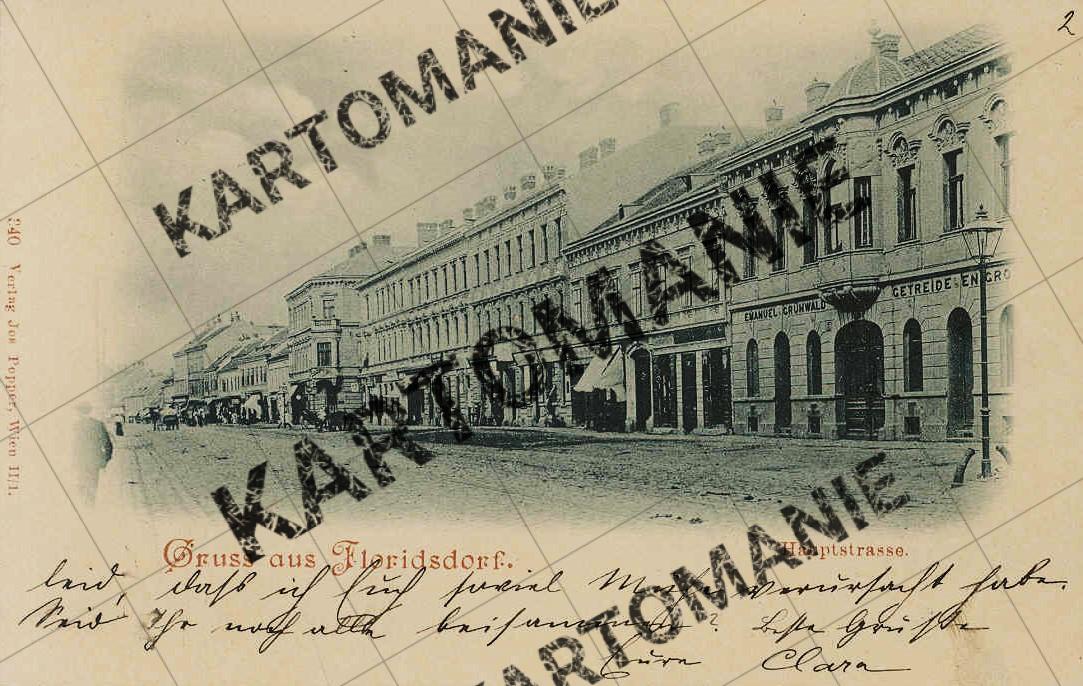 2
KARTOMANIE
KARTOMANIE
KARTOMANIE
KARTOMANIE
EMANUEL GRÜNWALD
GETREIDE-EN GRO
240 Verlag Jos Popper, Wien II/1.
Gruss aus Floridsdorf.
Hauptstrasse.
leid, daß ich Euch soviel verursacht habe.
Seid Ihr noch alle beisammen? Beste Grüße
Eure Clara